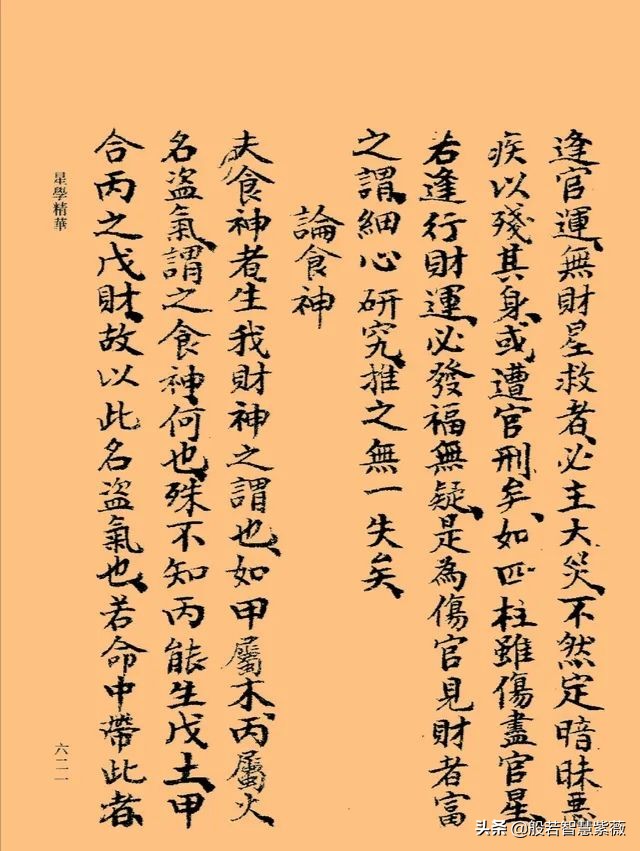 逢官運無財星救者必主大災不然定暗昧惡
疾以殘其身或遭官刑矣如匹柱雖傷盡官星
若逢行財運必發福無疑是為傷官見財者富
之謂細心研究推之無一失矣
論食神
夫食神者生我財神之謂也如甲屬木丙屬火
名盜氣謂之食神何也殊不知丙能生戊土甲
合丙之戊財故以此名盜氣也若命中帶此者
星學精華
六二一
头条 @般若智慧紫薇